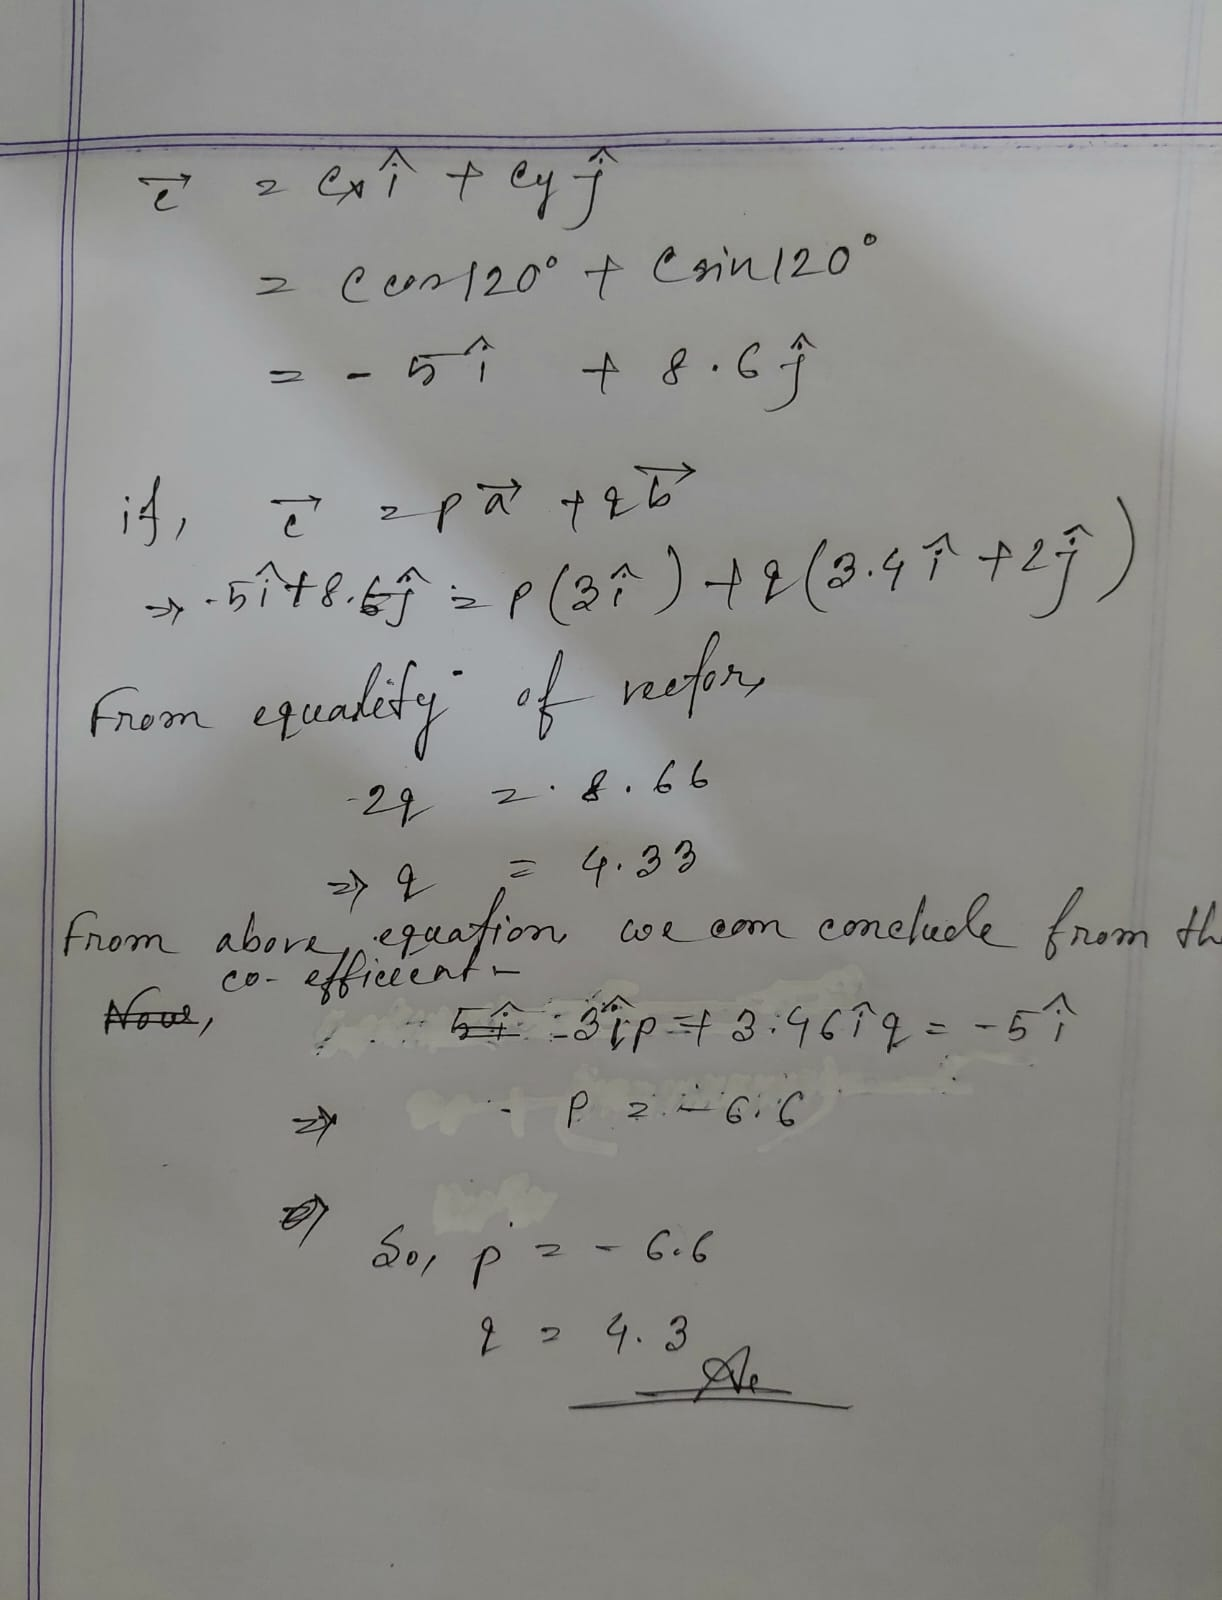 c⃗ = cx î + cy ĵ
= c cos120° + c sin120°
= - 5 î + 8.6 ĵ
if, c⃗ = p a⃗ + q b⃗
⇒ -5î + 8.6ĵ = p(3î) + q(3.4î + 2ĵ)
From equality of vector,
2q = 8.66
⇒ q = 4.33
From above, equation, we can conclude from th
co-efficient
Now,
5î 3îp + 3.46îq = -5î
⇒ p = -6.6
⇒
So, p = - 6.6
q = 4.3